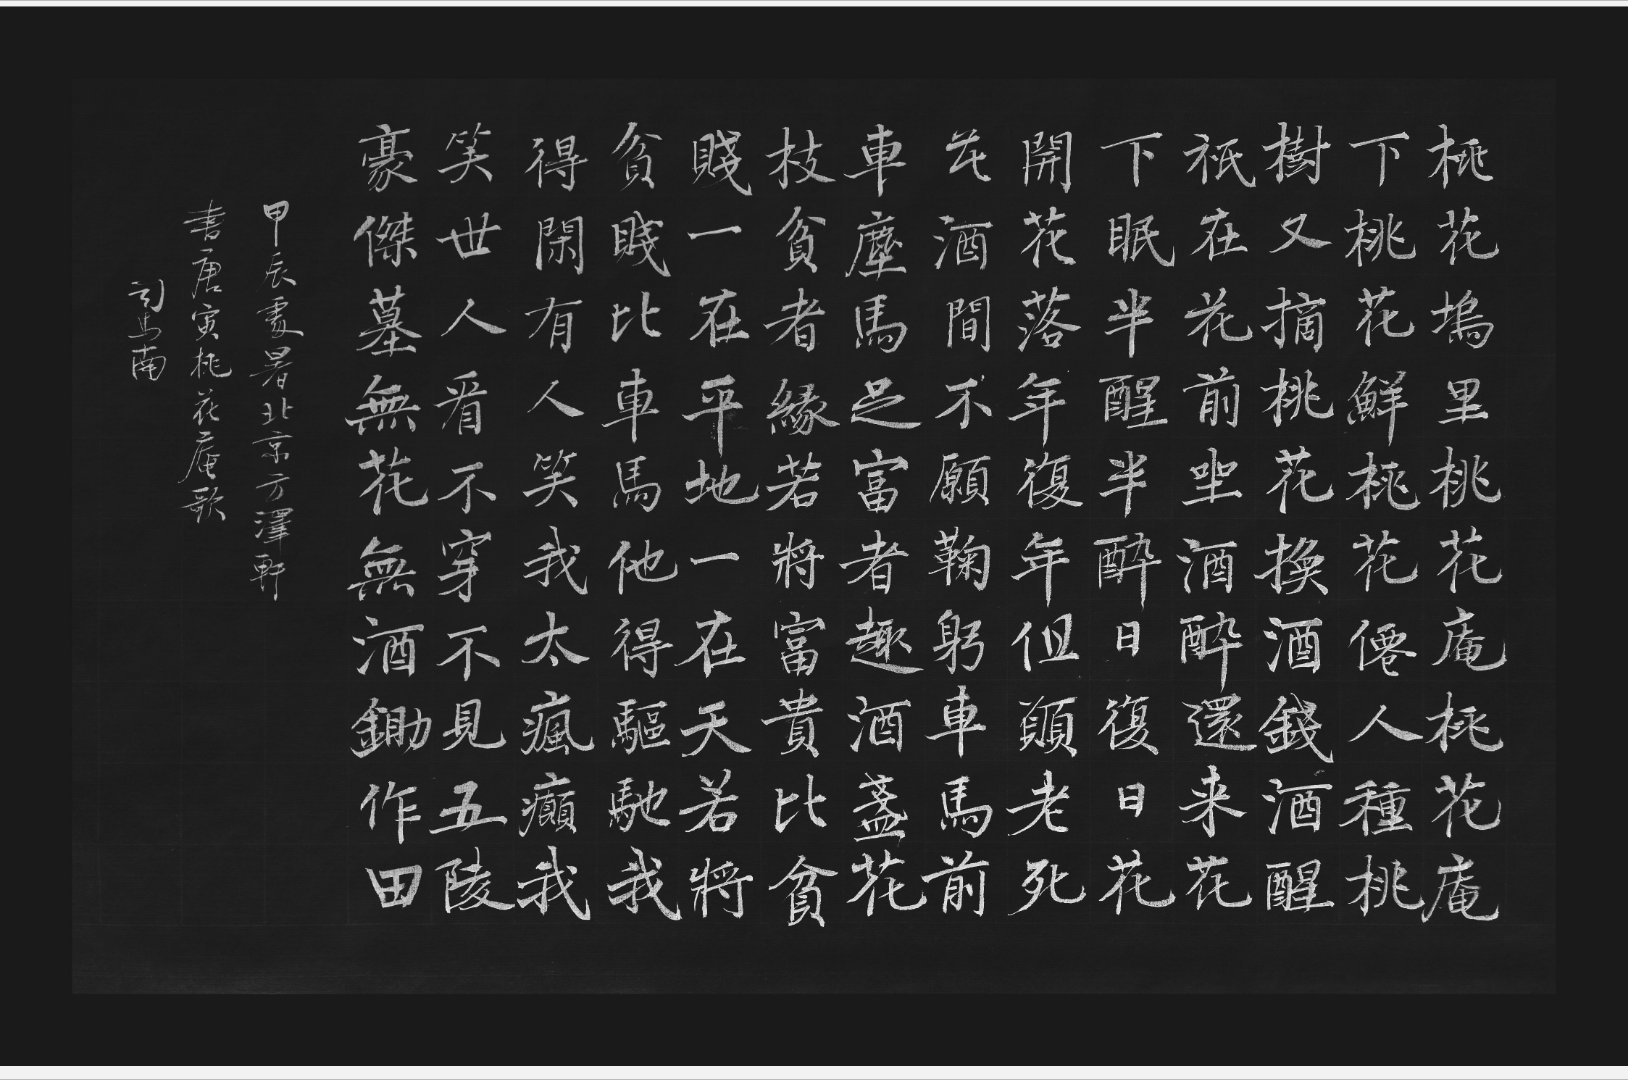 桃花塢里桃花庵桃花庵
下桃花鮮桃花僊人種桃
樹又摘桃花換酒錢酒醒
祇在花前坐酒醉還来花
下眠半醒半醉日復日花
開花落年復年但願老死
花酒間不願鞠躬車馬前
車塵馬足富者趣酒盞花
枝貧者緣若將富貴比貧
賤一在平地一在天若將
貧賤比車馬他得驅馳我
得閑有人笑我太瘋癲我
笑世人看不穿不見五陵
豪傑墓無花無酒鋤作田
甲辰處暑北京方澤軒
書唐寅桃花庵歌
司馬南